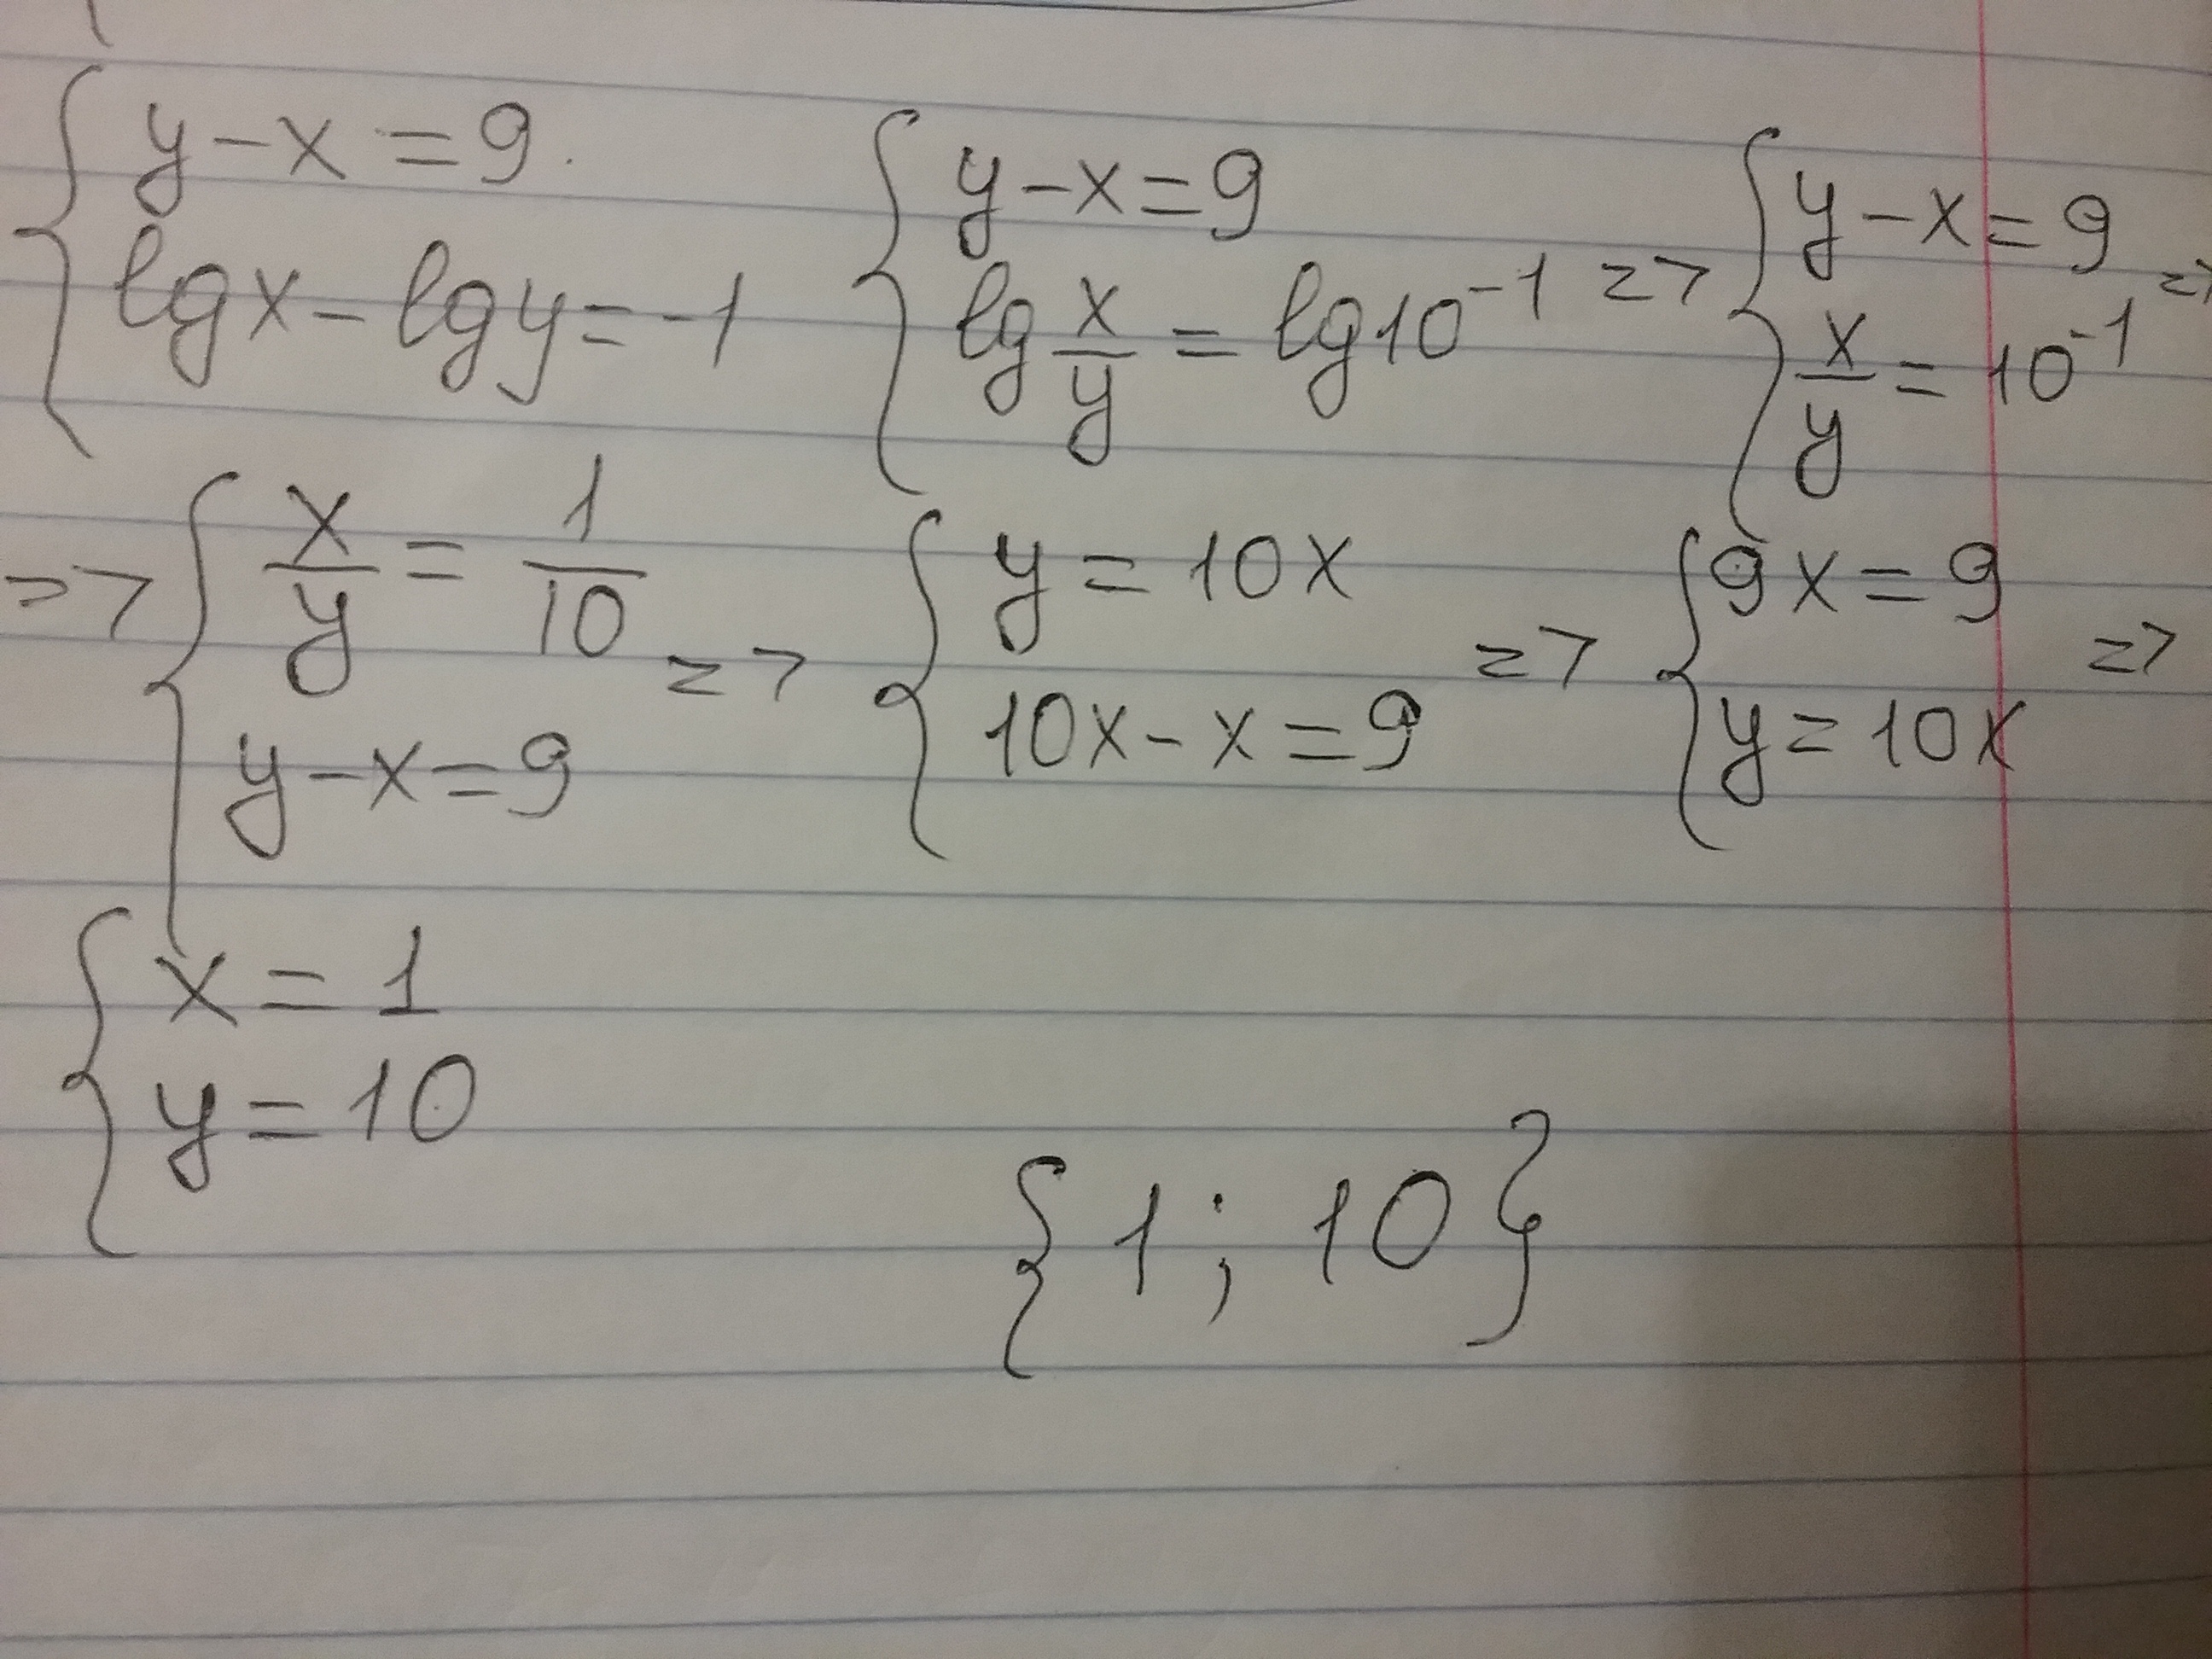 { y - x = 9
lg x - lg y = -1
{ y - x = 9
lg x/y = lg 10^-1 =>
{ y - x = 9
x/y = 10^-1 =>
=> { x/y = 1/10
y - x = 9 =>
{ y = 10x
10x - x = 9 =>
{ 9x = 9
y = 10x =>
{ x = 1
y = 10
{ 1 ; 10 }